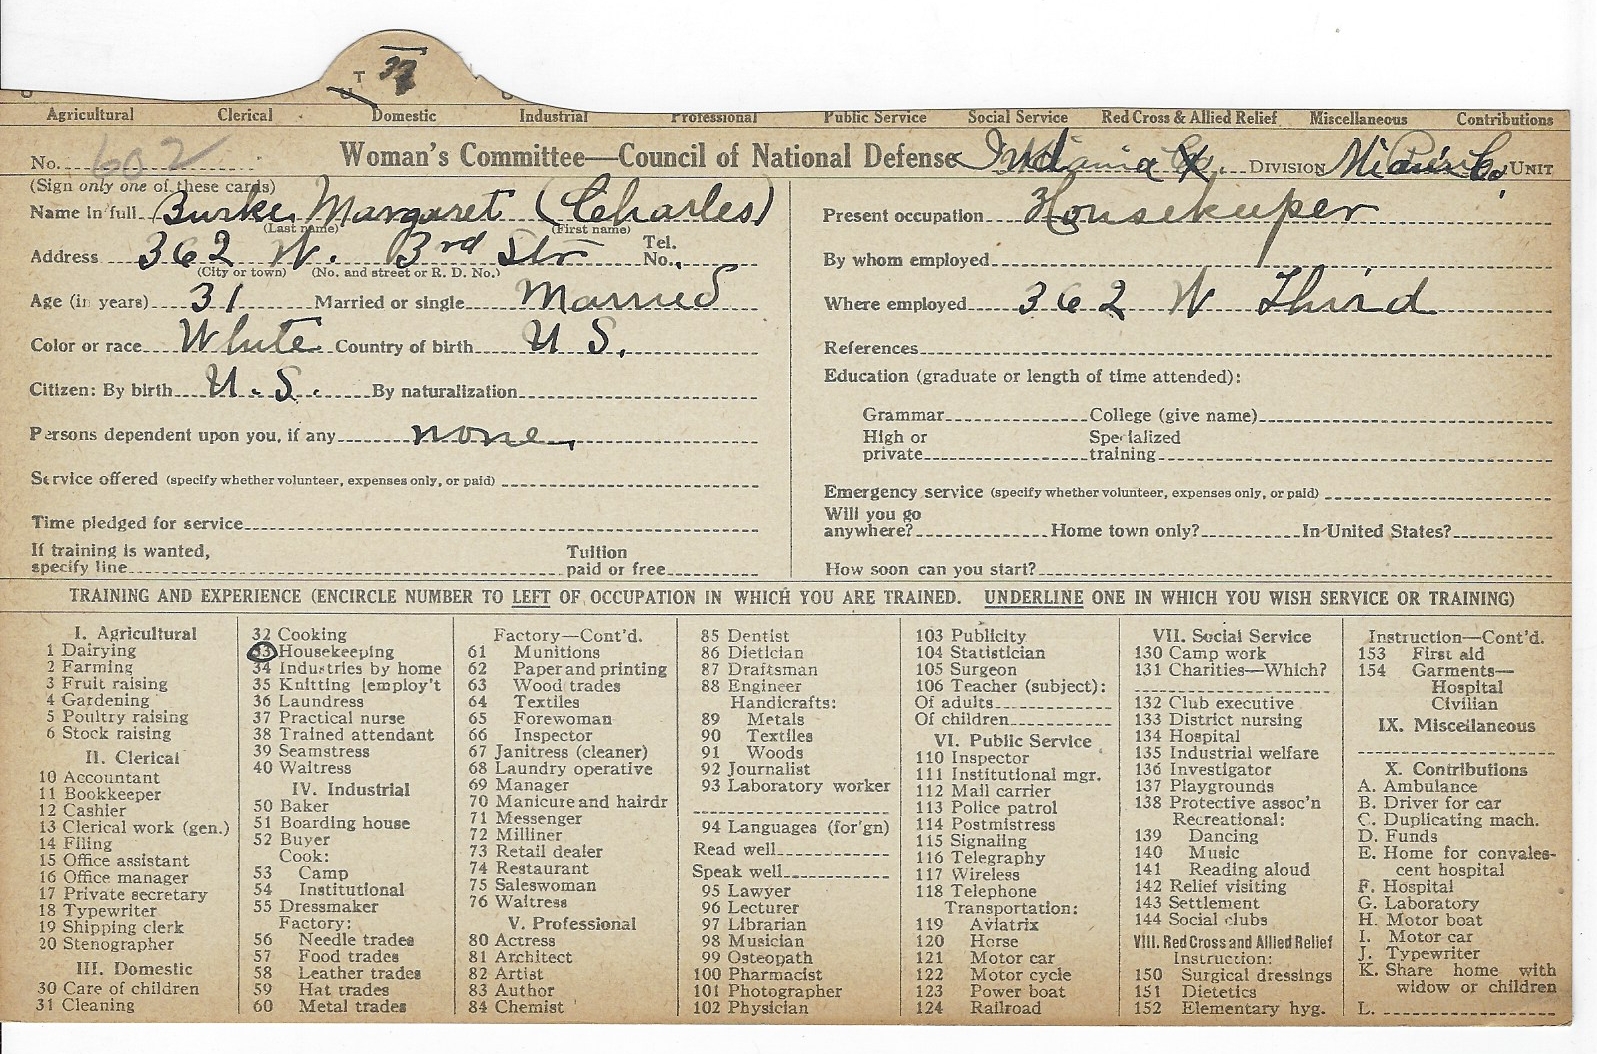 T 33
U
Agricultural Clerical Domestic Industrial Professional Public Service Social Service Red Cross & Allied Relief Miscellaneous Contributions
No. 602 Woman's Committee—Council of National Defense Indiana DIVISION Miami Co. UNIT
(Sign only one of these cards)
Name in full Burke, Margaret (Charles)
(Last name) (First name)
Address 362 W. 3rd Str Tel. No.
(City or town) (No. and street or R. D. No.)
Age (in years) 31 Married or single Married
Color or race White Country of birth U S.
Citizen: By birth U. S. By naturalization
Persons dependent upon you, if any none
Service offered (specify whether volunteer, expenses only, or paid)
Time pledged for service
If training is wanted, specify line Tuition paid or free
Present occupation Housekeeper
By whom employed
Where employed 362 W Third
References
Education (graduate or length of time attended):
Grammar College (give name)
High or private Specialized training
Emergency service (specify whether volunteer, expenses only, or paid)
Will you go anywhere? Home town only? In United States?
How soon can you start?
TRAINING AND EXPERIENCE (ENCIRCLE NUMBER TO LEFT OF OCCUPATION IN WHICH YOU ARE TRAINED. UNDERLINE ONE IN WHICH YOU WISH SERVICE OR TRAINING)
I. Agricultural
1 Dairying
2 Farming
3 Fruit raising
4 Gardening
5 Poultry raising
6 Stock raising
II. Clerical
10 Accountant
11 Bookkeeper
12 Cashier
13 Clerical work (gen.)
14 Filing
15 Office assistant
16 Office manager
17 Private secretary
18 Typewriter
19 Shipping clerk
20 Stenographer
III. Domestic
30 Care of children
31 Cleaning
32 Cooking
33 Housekeeping
34 Industries by home
35 Knitting [employ't
36 Laundress
37 Practical nurse
38 Trained attendant
39 Seamstress
40 Waitress
IV. Industrial
50 Baker
51 Boarding house
52 Buyer
Cook:
53 Camp
54 Institutional
55 Dressmaker
Factory:
56 Needle trades
57 Food trades
58 Leather trades
59 Hat trades
60 Metal trades
Factory—Cont'd.
61 Munitions
62 Paper and printing
63 Wood trades
64 Textiles
65 Forewoman
66 Inspector
67 Janitress (cleaner)
68 Laundry operative
69 Manager
70 Manicure and hairdr
71 Messenger
72 Milliner
73 Retail dealer
74 Restaurant
75 Saleswoman
76 Waitress
V. Professional
80 Actress
81 Architect
82 Artist
83 Author
84 Chemist
85 Dentist
86 Dietician
87 Draftsman
88 Engineer
Handicrafts:
89 Metals
90 Textiles
91 Woods
92 Journalist
93 Laboratory worker
94 Languages (for'gn)
Read well
Speak well
95 Lawyer
96 Lecturer
97 Librarian
98 Musician
99 Osteopath
100 Pharmacist
101 Photographer
102 Physician
103 Publicity
104 Statistician
105 Surgeon
106 Teacher (subject):
Of adults
Of children
VI. Public Service
110 Inspector
111 Institutional mgr.
112 Mail carrier
113 Police patrol
114 Postmistress
115 Signaling
116 Telegraphy
117 Wireless
118 Telephone
Transportation:
119 Aviatrix
120 Horse
121 Motor car
122 Motor cycle
123 Power boat
124 Railroad
VII. Social Service
130 Camp work
131 Charities—Which?
132 Club executive
133 District nursing
134 Hospital
135 Industrial welfare
136 Investigator
137 Playgrounds
138 Protective assoc'n
Recreational:
139 Dancing
140 Music
141 Reading aloud
142 Relief visiting
143 Settlement
144 Social clubs
VIII. Red Cross and Allied Relief
Instruction:
150 Surgical dressings
151 Dietetics
152 Elementary hyg.
Instruction—Cont'd.
153 First aid
154 Garments—
Hospital
Civilian
IX. Miscellaneous
X. Contributions
A. Ambulance
B. Driver for car
C. Duplicating mach.
D. Funds
E. Home for convales-
cent hospital
F. Hospital
G. Laboratory
H. Motor boat
I. Motor car
J. Typewriter
K. Share home with
widow or children
L.